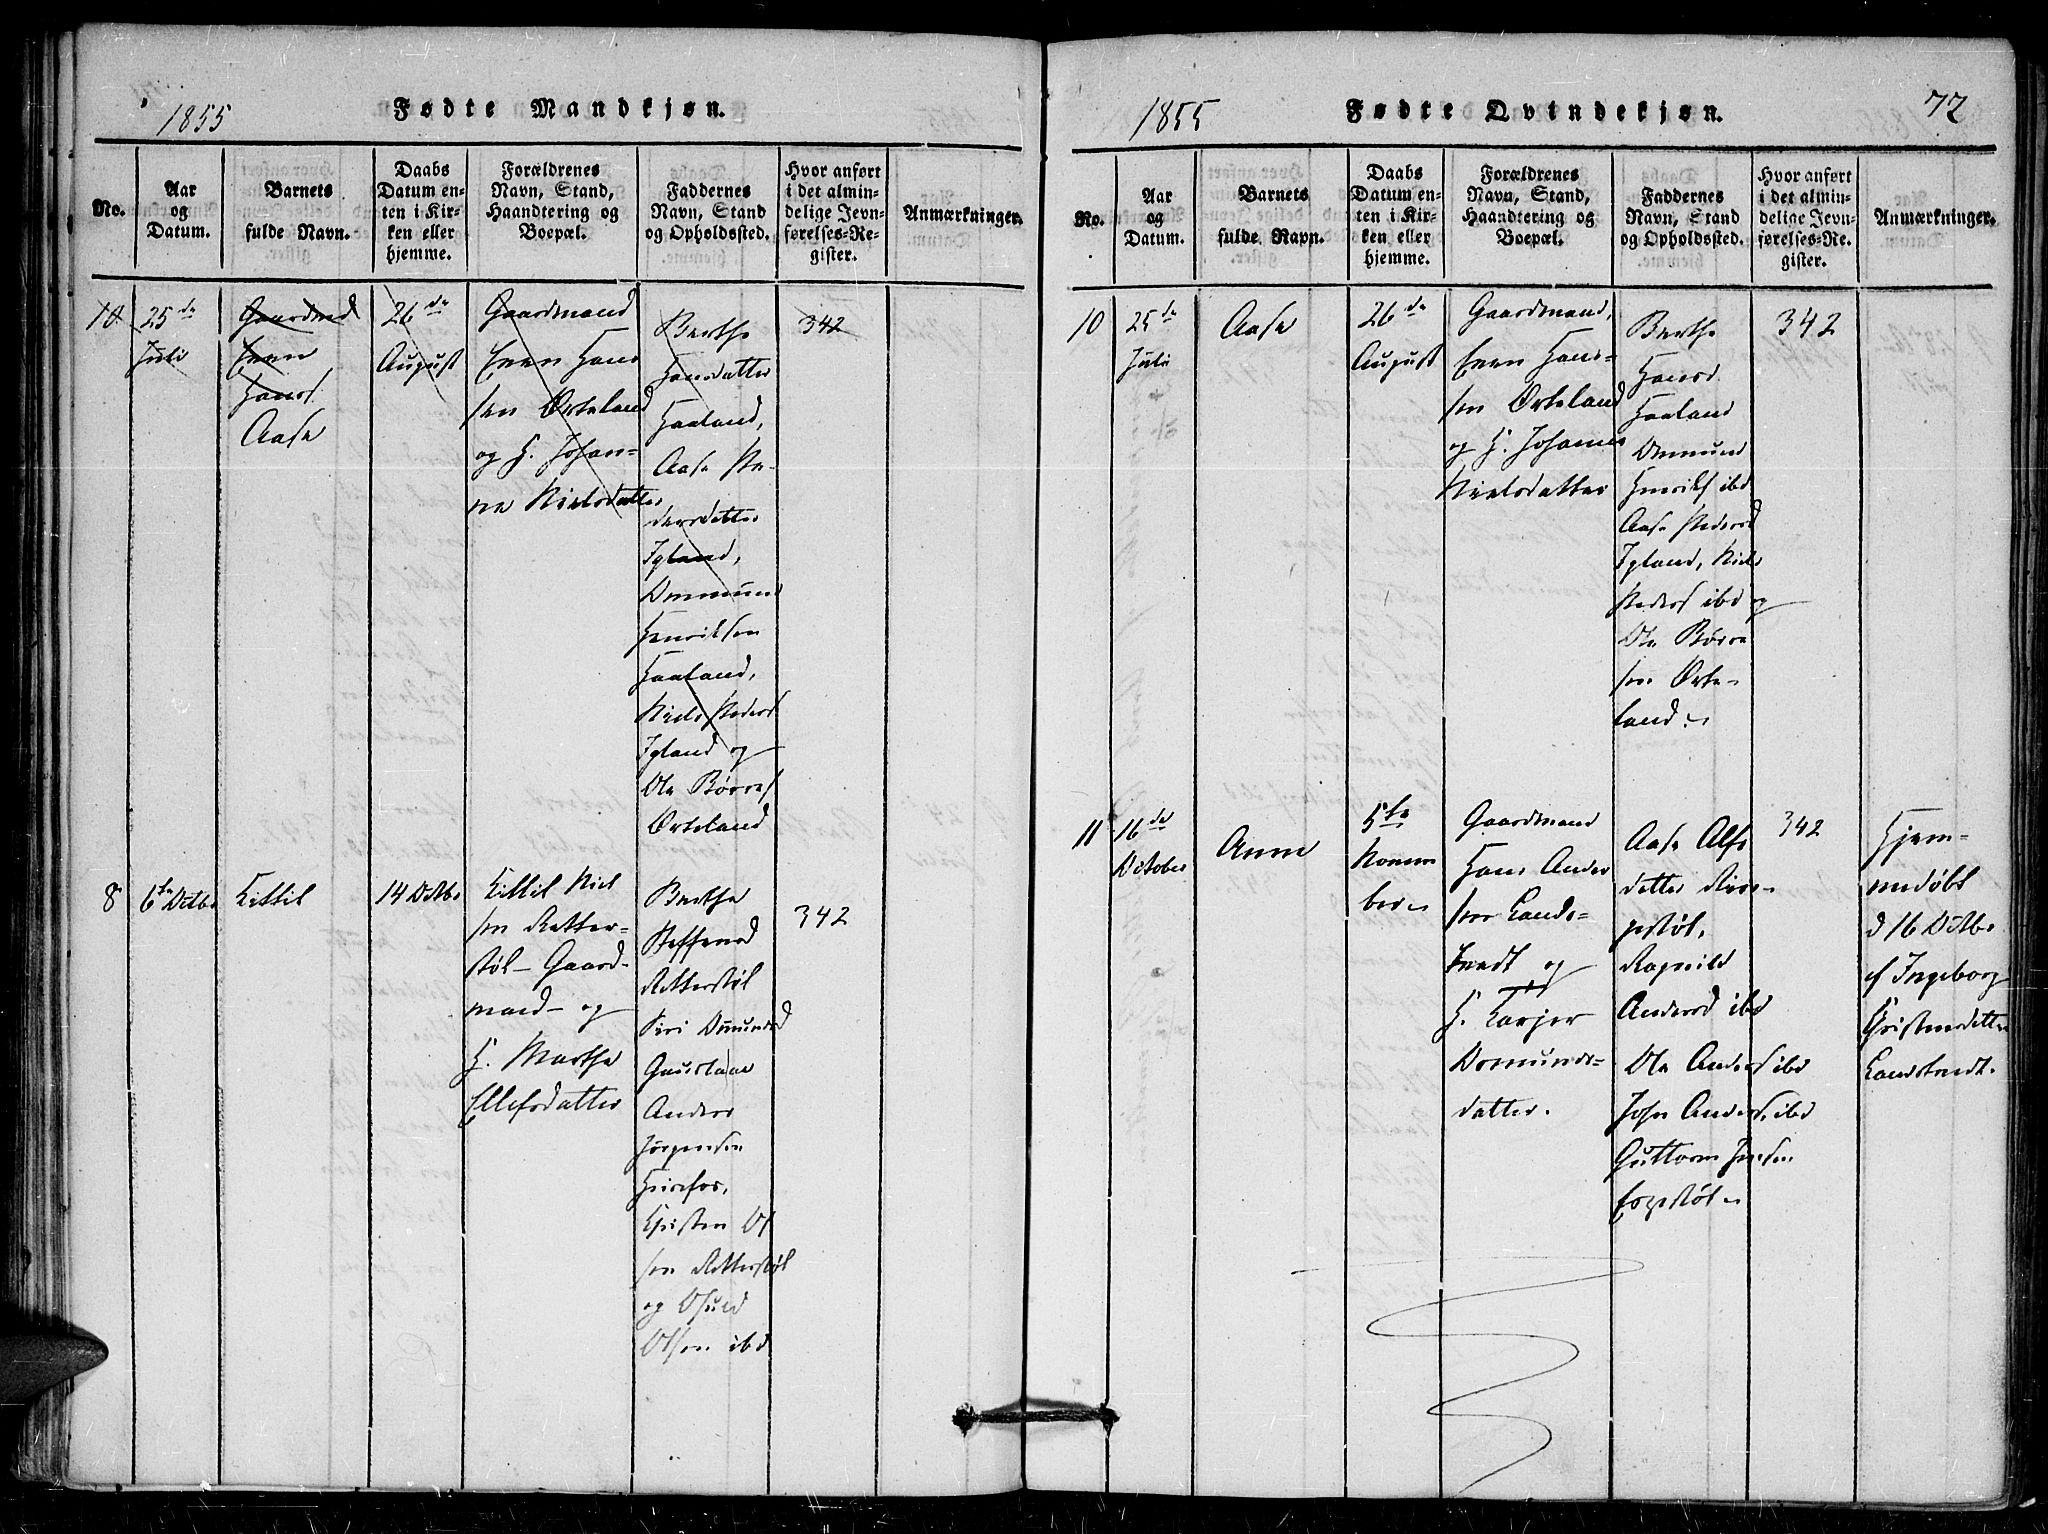 1855
Fødte Mandkjøn.
No.
Aar
og
Datum.
Barnets
fulde Navn.
Daabs
Datum en-
ten i Kir-
ken eller
hjemme.
Forældrenes
Navn, Stand,
Haandtering og
Boepæl.
Faddernes
Navn, Stand
og Opholdssted.
Hvor anført
i det almin-
delige Jevn-
førelses-Re-
gister.
Anmærkninger.
10.
25de
Juli
Gaardmd
Even
Hans
Aase
26de
August
Gaardmand
Even Han
sen Ørteland
og H. Johan-
ne Nielsdatter
Berthe
Hansdatter
Haaland,
Aase Pe-
dersdatter
Igland,
Ommund
Henriksen
Haaland,
Niels Peders
Igland og
Ole Børres
Ørteland
342
8
6te Octbr
Kittil
14 Octbr
Kittil Niel
sen Retter-
støl - Gaard-
mand - og
H. Marthe
Ellefsdatter
Berthe
Steffensd
Retterstøl
Siri Omunds
Gauslaae
Anders
Jørgensen
Heirefos,
Christen Ol
sen Retterstøl
og Osuld
Olsen ibd
342
1855
Fødte Qvindekjøn.
77
No.
Aar
og
Datum.
Barnets
fulde Navn.
Daabs
Datum en-
ten i Kir-
ken eller
hjemme.
Forældrenes
Navn, Stand,
Haandtering og
Boepæl.
Faddernes
Navn, Stand
og Opholdssted.
Hvor anført
i det almin-
delige Jevn-
førelses-Re-
gister.
Anmærkninger.
10
25de
Juli
Aase
26de
August
Gaardmand,
Even Han-
sen Ørteland
og H. Johanne
Nielsdatter
Berthe
Hansd.
Haaland
Ommund
Henriks ibd
Aase Pedersd
Igland, Niels
Peders ibd og
Ole Børre
sen Ørte-
land.
342
11
16de
October
Anne
5te
Novem
ber
Gaardmand
Hans Ander
sen Lands-
tvedt og
H. Tarjer
Omunds-
datter.
Aase Alfs
datter
Ragnild
Andersd ibd
Ole Anders ibd
John Anders. ibd
Guttorm Jensen
342
Hjem-
medøbt
d 16 Octbr
af Ingeborg
Christensdatter
Landstvedt.